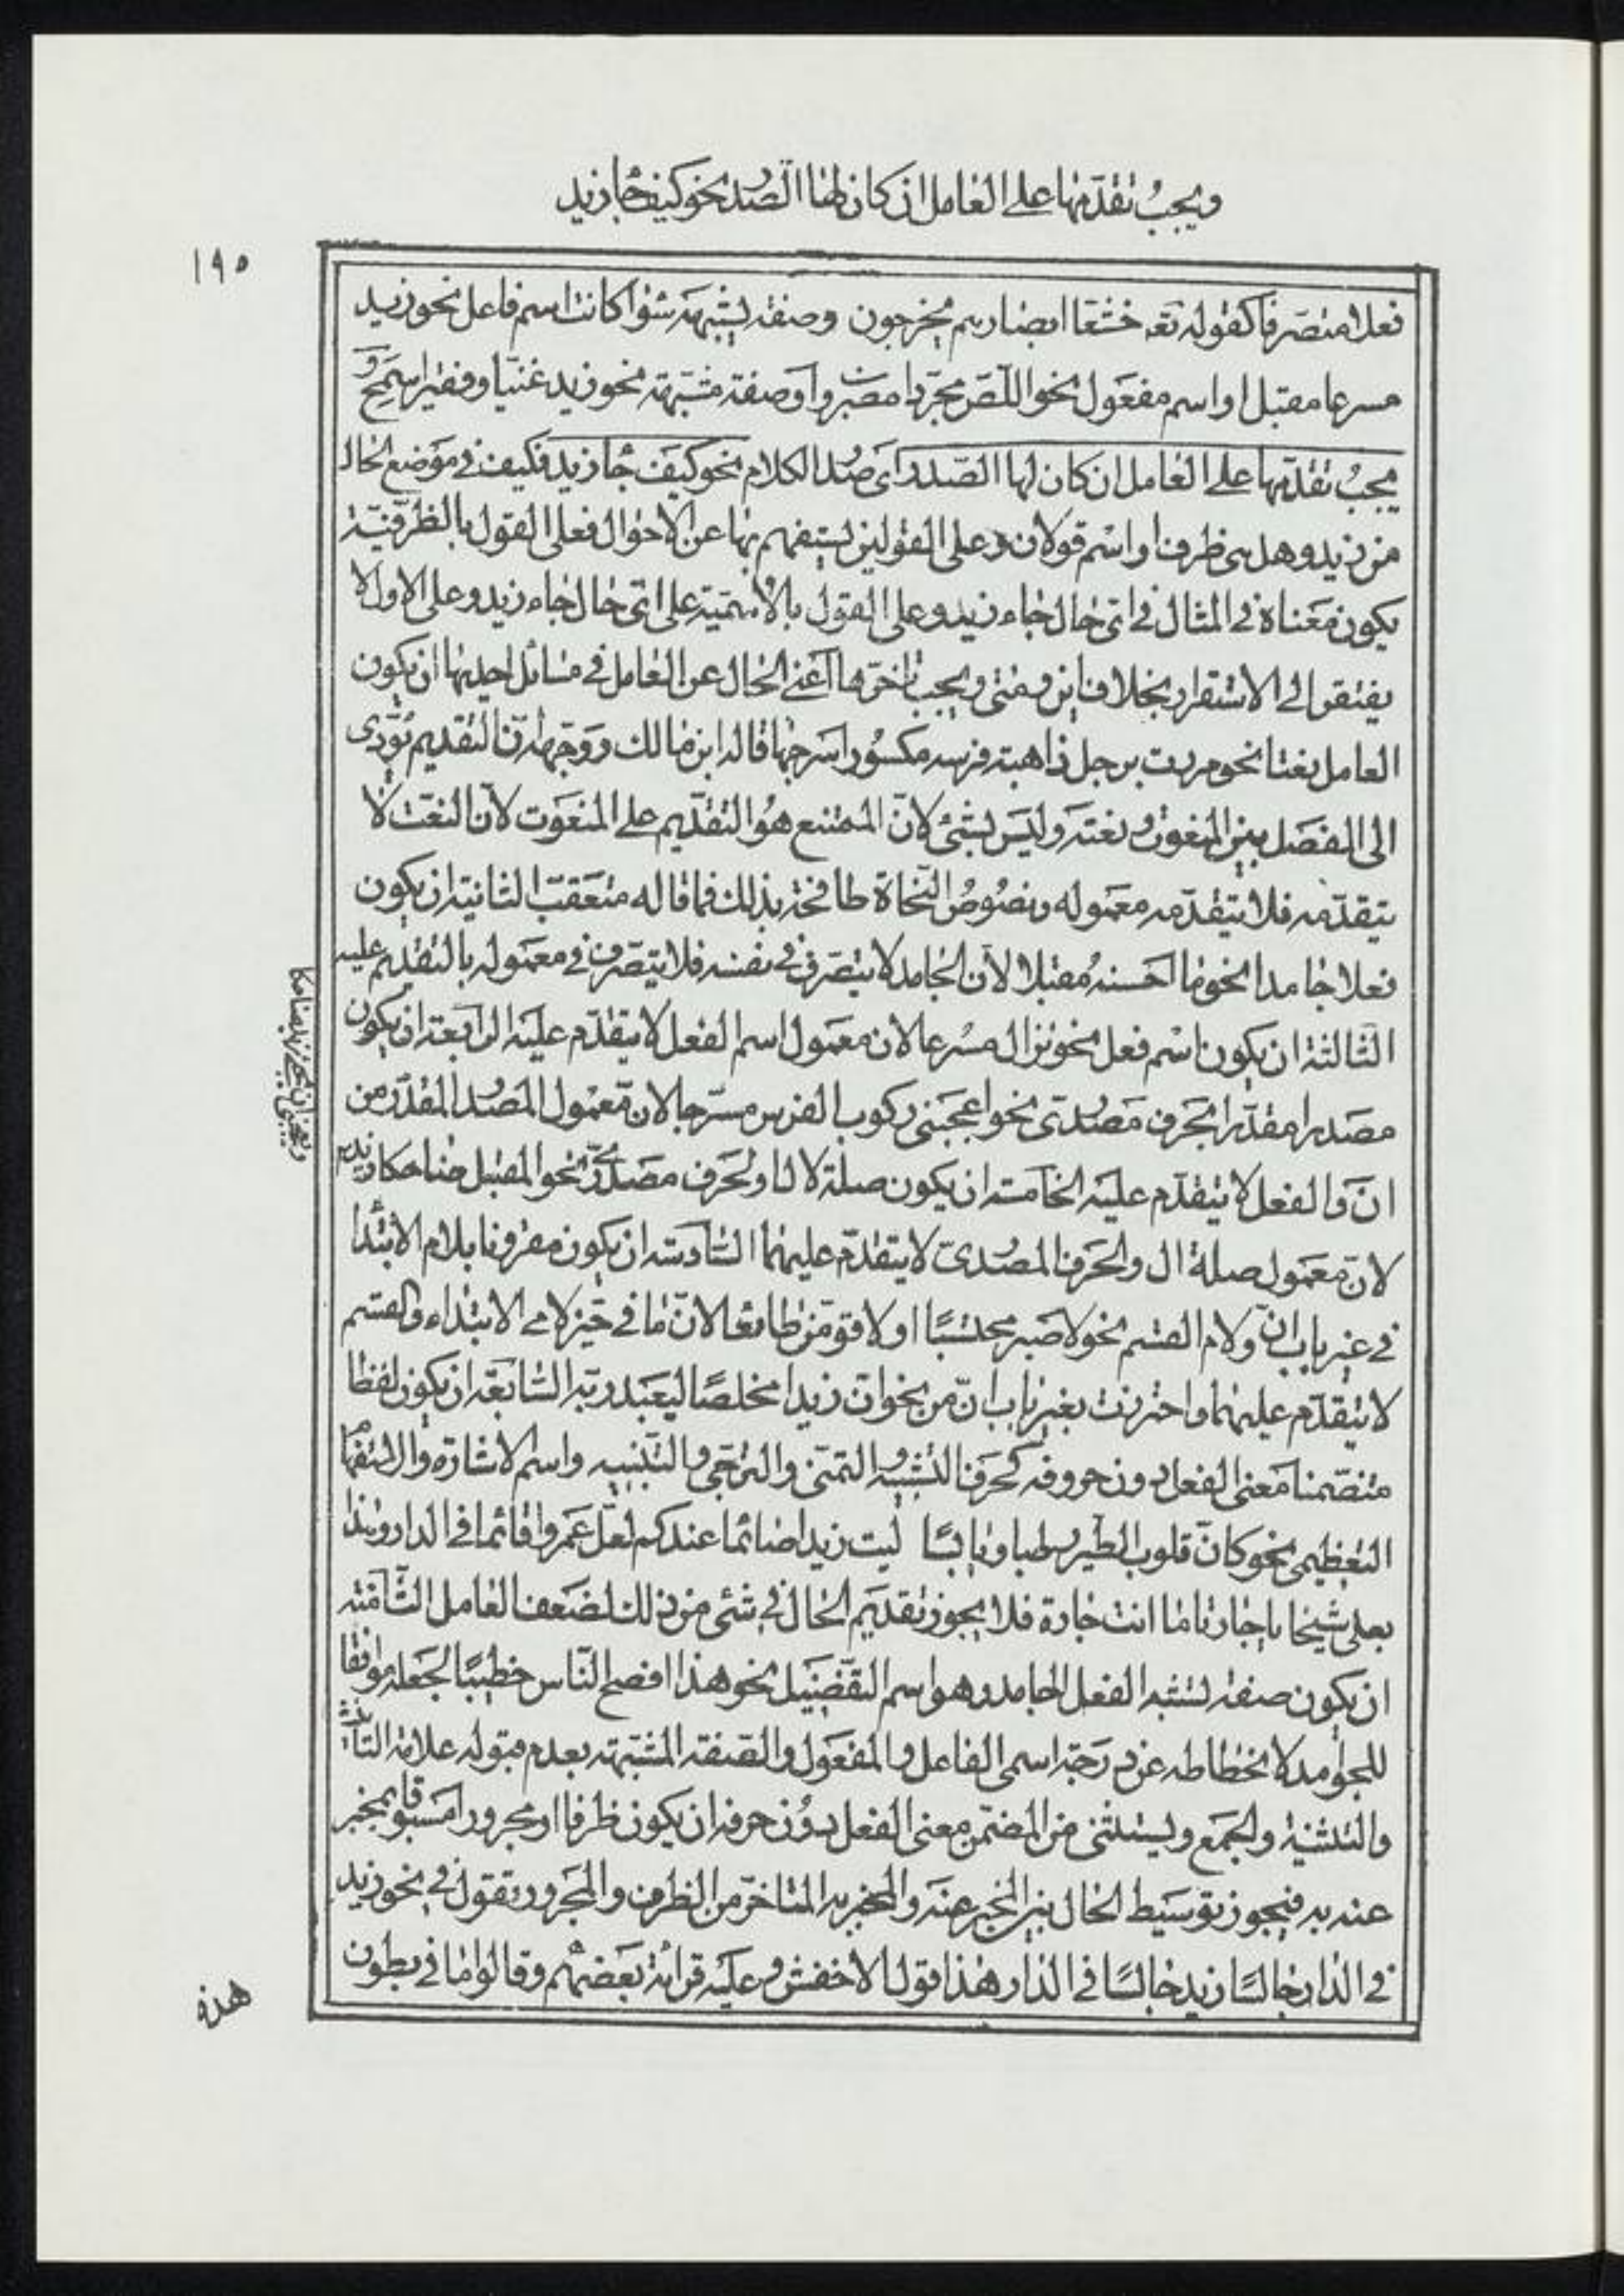 ويجب تقدمها على العامل ان كان لها الصدر نحو كيف جا زيد
١٩٥
فعلا متصرفا كقوله تعه خشعا ابصارهم يخرجون وصفة يشبهه سوا كانت اسم فاعل نحو زيد
مسرعا مقبل او اسم مفعول نحو اللص مجردا مضروب او صفة مشبهة نحو زيد غنيا وفقيرا سمح و
يجب تقدمها على العامل ان كان لها الصدر اى صدر الكلام نحو كيف جا زيد فكيف في موضع الحال
من زيد وهل هى ظرف او اسم قولان وعلى القولين يستفهم بها عن الاحوال فعلى القول بالظرفية
يكون معناه في المثال في اى حال جاء زيد وعلى القول بالاسمية على اى حال جاء زيد وعلى الاول لا
يفتقر الى الاستقرار بخلاف اين ومتى ويجب تاخرها اعنى الحال عن العامل في مسائل احديها ان يكون
العامل نعتا نحو مررت برجل ذاهبة فرسه مكسورا سرجها قاله ابن مالك ووجهه ان التقديم يؤدى
الى الفصل بين المنعوت ونعته وليس بشئ لان الممتنع هو التقديم على المنعوت لان النعت لا
يتقدمه فلا يتقدمه معموله ونصوص النحاة طافحة بذلك فما قاله متعقب الثانية ان يكون
فعلا جامدا نحو ما احسنه مقبلا لان الجامد لا يتصرف في نفسه فلا يتصرف في معموله بالتقديم عليه
الثالثة ان يكون اسم فعل نحو نزال مسرعا لان معمول اسم الفعل لا يتقدم عليه الرابعة ان يكون
مصدرا مقدرا بحرف مصدرى نحو اعجبنى ركوب الفرس مسرجا لان معمول المصدر المقدر من
ان والفعل لا يتقدم عليه الخامسة ان يكون صلة لال او لحرف مصدرى نحو المقبل ضاحكا زيد
لان معمول صلة ال والحرف المصدرى لا يتقدم عليهما السادسة ان يكون مقرونا بلام الابتدا
في غير باب ان ولام القسم نحو لاصبر محتسبا او لاقومن طائعا لان ما في حيز لامى الابتداء والقسم
لا يتقدم عليهما واحترزت بغير باب ان من نحو ان زيدا مخلصا ليعبد ربه السابعة ان يكون لفظا
متضمنا معنى الفعل دون حروفه كحرف التشبيه والتمنى والترجى والتنبيه واسم الاشارة والاستفهام
التعظيمى نحو كان قلوب الطير رطبا ويابسا ليت زيدا صائما عندكم لعل عمروا قائما في الدار وهذا
بعلى شيخا يا جارتا ما انت جارة فلا يجوز تقديم الحال في شئ من ذلك لضعف العامل الثامنة
ان يكون صفة تشبه الفعل الجامد وهو اسم التفضيل نحو هذا افصح الناس خطيبا لجعله موافقا
للجوامد لانحطاطه عن درجة اسمى الفاعل والمفعول والصفة المشبهة بعدم قبوله علامة التانيث
والتثنية والجمع ويستثنى من المضمن معنى الفعل دون حرفه ان يكون ظرفا او مجرورا مسبوقا بمخبر
عنه به فيجوز توسيط الحال بين المخبر عنه والمخبر به المتاخر من الظرف والمجرور تقول في نحو زيد
في الدار جالسا زيد جالسا في الدار هذا قول الاخفش وعليه قراءة بعضهم وقالوا ما في بطون
هذه